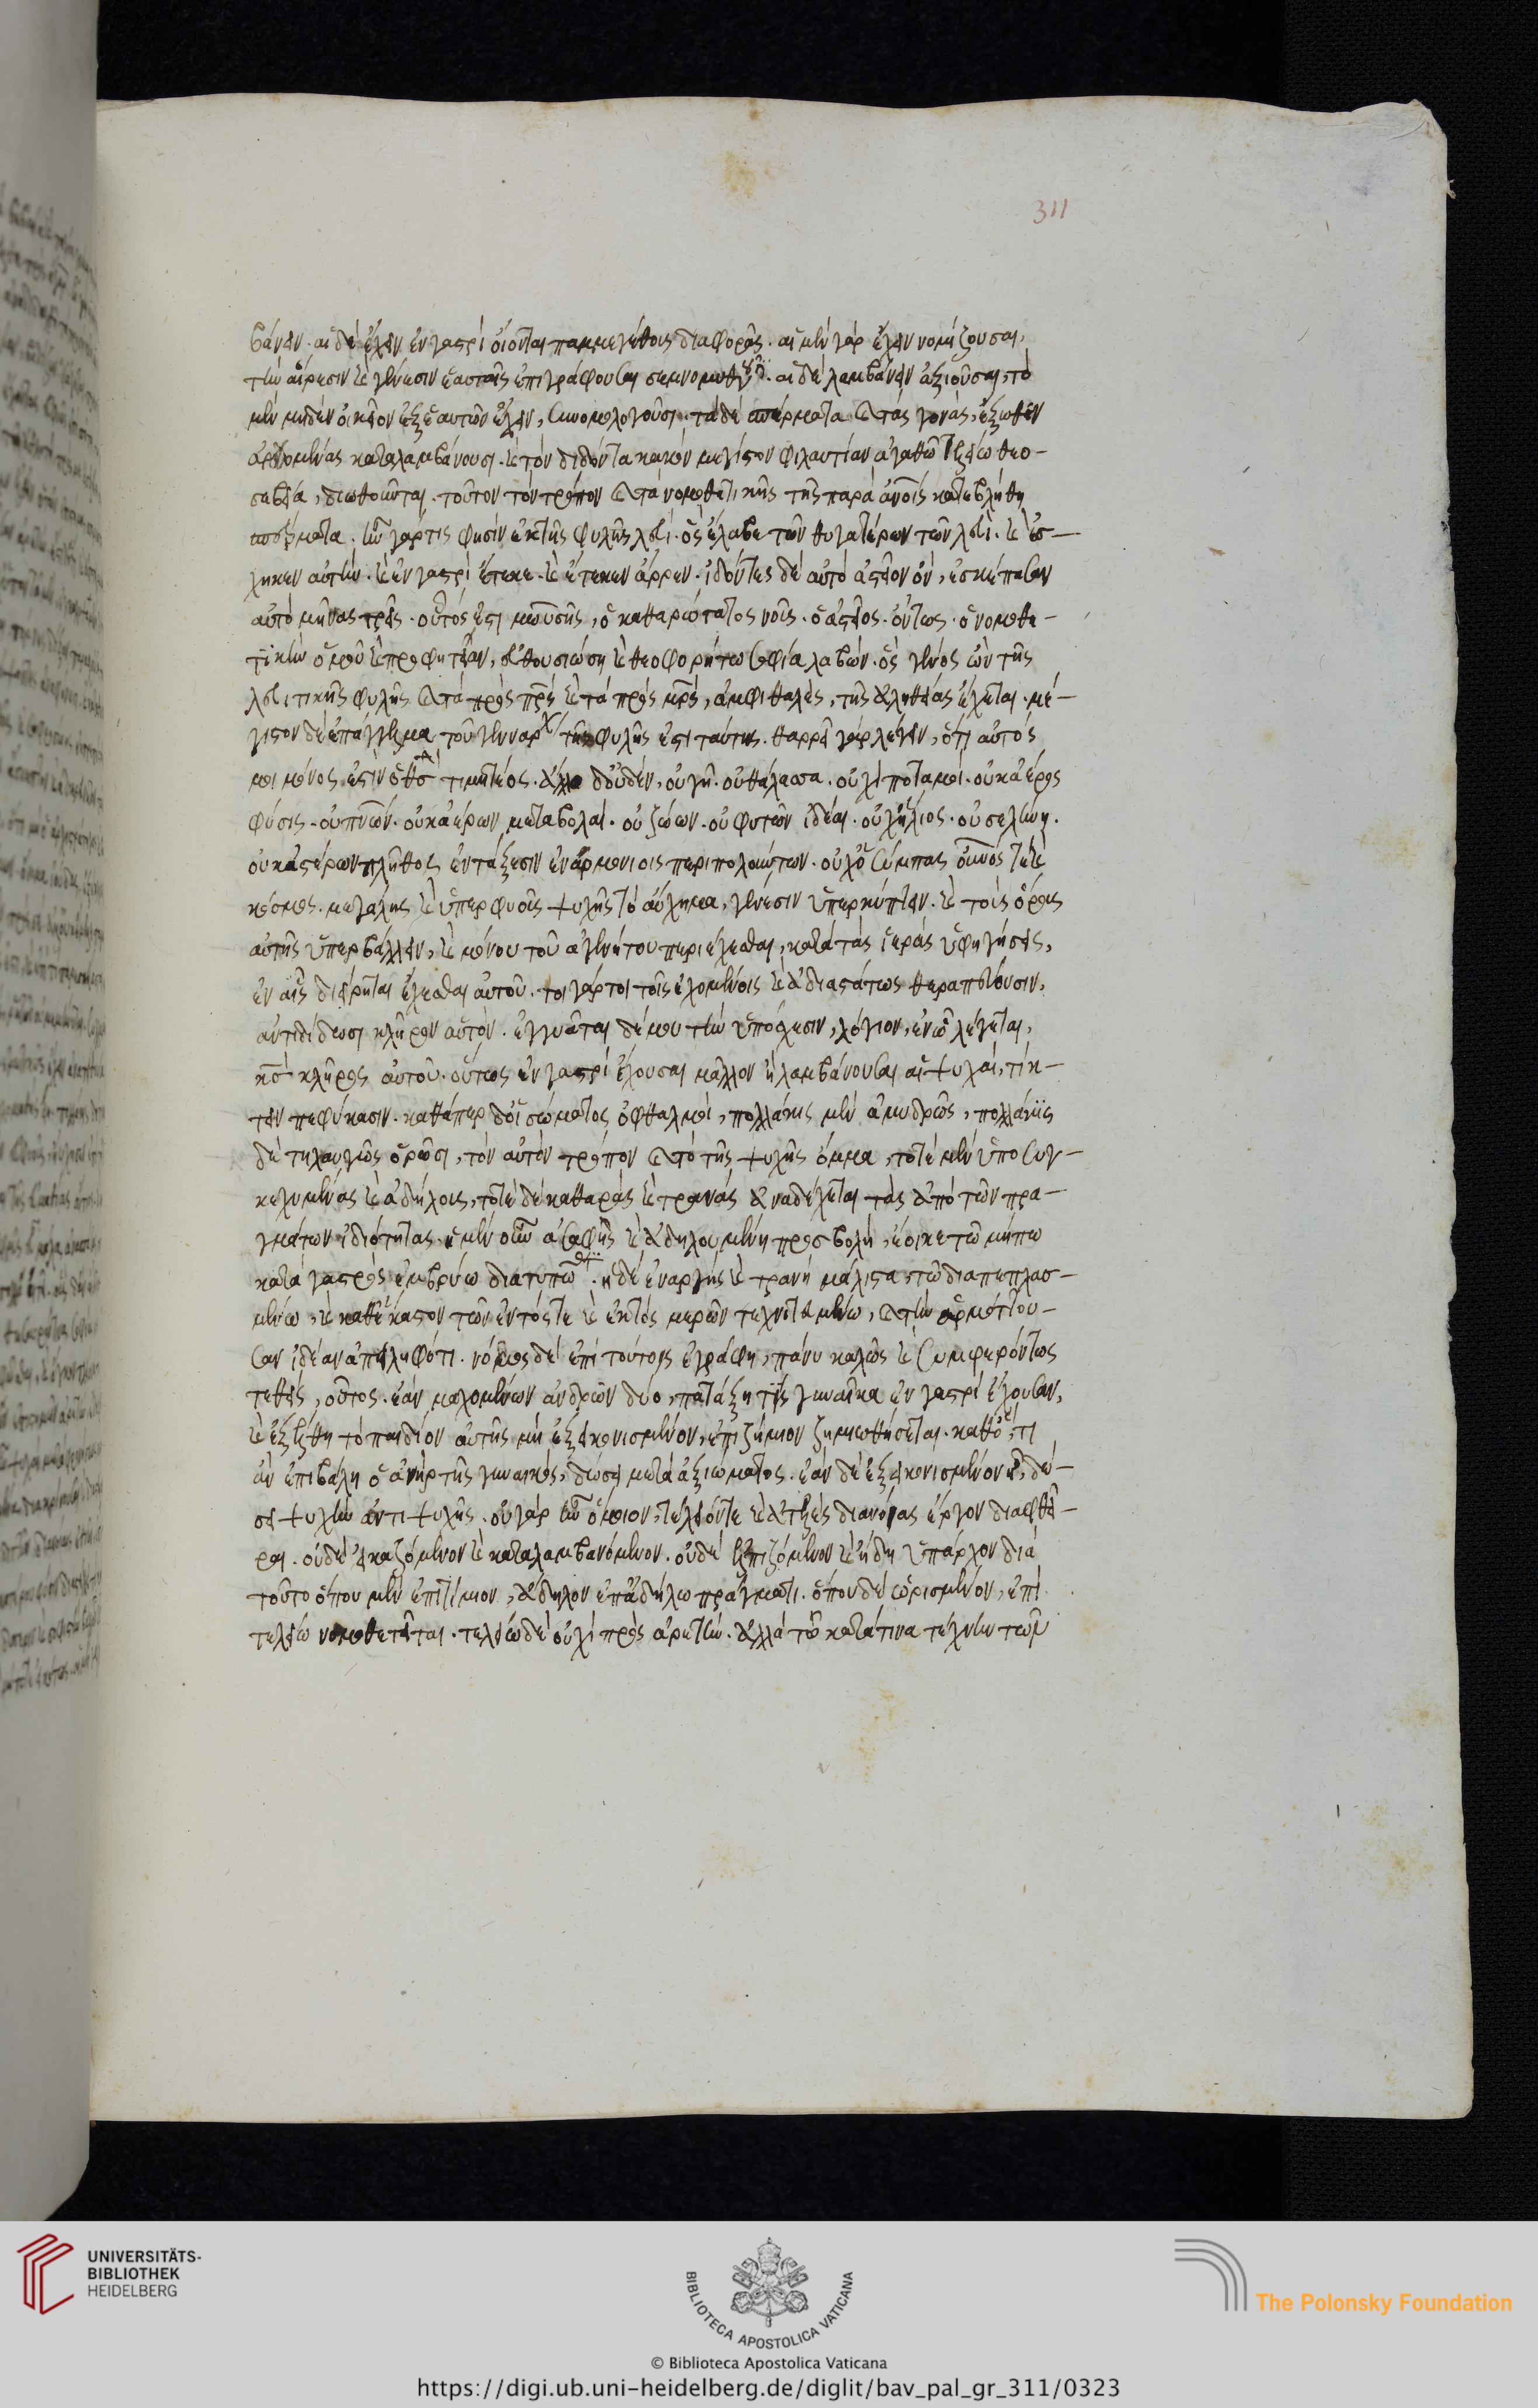 311
βάνειν. αἱ δὲ ἔχειν ἐν γαστρὶ οἴονται παμμεγέθοις διαφοραῖς. αἱ μὲν γὰρ ἔχειν νομίζουσαι,
τὴν αἵρεσιν καὶ γένεσιν ἑαυταῖς ἐπιγράφουσαι σεμνομυθοῦσιν. αἱ δὲ λαμβάνειν ἀξιοῦσαι, τὸ
μὲν μηδὲν οἰκεῖον ἐξ ἑαυτῶν ἔχειν, συνομολογοῦσι. τὰ δὲ σπέρματα καὶ τὰς γονὰς, ἔξωθεν
ἀρδομένας καταλαμβάνουσι. καὶ τὸν διδόντα κακὸν μέγιστον φιλαυτίαν ἀγαθῶ τελείω θεο-
σεβεία, διωθοῦνται. τοῦτον τὸν τρόπον καὶ τὰ νομοθετικῆς τῆς παρὰ ἀνοις κατεβλήθη
σπέρματα. ἦν γάρ τις φησὶν ἐκ τῆς φυλῆς λευὶ. ὃς ἔλαβε τῶν θυγατέρων τῶν λευὶ. καὶ ἔσ-
χηκεν αὐτὴν. καὶ ἐν γαστρὶ ἔτεκε. καὶ ἔτεκεν ἄρρεν. ἰδόντες δὲ αὐτὸ ἀστεῖον ὂν, ἐσκέπασαν
αὐτὸ μῆνας τρεῖς. οὗτός ἐστι μωυσῆς, ὁ καθαρώτατος νοῦς. ὁ ἀστεῖος. ὄντως. ὁ νομοθε-
τικὴν ὁμοῦ καὶ προφητείαν, ἐνθουσιώση καὶ θεοφορήτω σοφία λαβών. ὃς γένος ὢν τῆς
λευιτικῆς φυλῆς καὶ τὰ πρὸς πρς καὶ τὰ πρὸς μρς, ἀμφιθαλὲς, τῆς ἀληθείας ἔχεται. μέ-
γιστον δὲ ἐπάγγελμα τοῦ γενάρχου τῆς φυλῆς ἐστι ταύτης. θαρρεῖ γὰρ λέγειν, ὅτι αὐτός
μοι μόνος ἐστὶν ὁ θσ τιμητέος. ἄλλο δ' οὐδὲν, οὐ γῆ. οὐ θάλασσα. οὐχὶ ποταμοί. οὐκ ἀέρος
φύσις. οὐ πνων. οὐκ ἀέρων μεταβολαί. οὐ ζώων. οὐ φυτῶν ἰδέαι. οὐχ ἥλιος. οὐ σελήνη.
οὐκ ἀστέρων πλῆθος ἐν τάξεσιν ἐναρμονίοις περιπολούντων. οὐχ ὁ σύμπας οὐνός τε καὶ
κόσμος. μεγάλης καὶ ὑπερφυοῦς ψυχῆς τὸ αὔχημα, γένεσιν ὑπερκύπτειν. καὶ τοὺς ὅρους
αὐτῆς ὑπερβάλλειν, καὶ μόνου τοῦ ἀγενήτου περιέχεσθαι, κατὰ τὰς ἱερὰς ὑφηγήσεις,
ἐν αἷς διείρηται ἔχεσθαι αὐτοῦ. τοιγάρτοι τοῖς ἐχομένοις καὶ ἀδιαστάτως θεραπεύουσιν,
ἀντιδίδωσι κλῆρον αὐτόν. ἐγγυᾶται δέ μου τὴν ὑπόσχεσιν, λόγιον, ἐν ὧ λέγεται,
κσ κλῆρος αὐτοῦ. οὕτως ἐν γαστρὶ ἔχουσαι μᾶλλον ἢ λαμβάνουσαι αἱ ψυχαὶ, τίκ-
τειν πεφύκασιν. καθάπερ δ' οἱ σώματος ὀφθαλμοὶ, πολλάκις μὲν ἀμυδρῶς, πολλάκις
δὲ τηλαυγῶς ὁρῶσι, τὸν αὐτὸν τρόπον καὶ τὸ τῆς ψυχῆς ὄμμα, τοτὲ μὲν ὑποσυγ-
κεχυμένας καὶ ἀδήλοις, τοτὲ δὲ καθαρὰς καὶ τρανὰς ἀναδέχεται τὰς ἀπὸ τῶν πρα-
γμάτων ἰδιότητας. ἡ μὲν οὖν ἀσαφὴς καὶ ἀδηλουμένη προσβολὴ, ἔοικε τῶ μήπω
κατὰ γαστρὸς ἐμβρύω διατυπωθέντι. ἡ δὲ ἐναργὴς καὶ τρανὴ μάλιστα, τῶ διαπεπλασ-
μένω, καὶ καθ' ἕκαστον τῶν ἐντός τε καὶ ἐκτὸς μερῶν τεχνιτευμένω, καὶ τὴν ἁρμόττου-
σαν ἰδέαν ἀπειληφότι. νόμος δὲ ἐπὶ τούτοις ἐγράφη, πάνυ καλῶς καὶ συμφερόντως
τεθεὶς, οὗτος. ἐὰν μαχομένων ἀνδρῶν δύο, πατάξη τὶς γυναῖκα ἐν γαστρὶ ἔχουσαν,
καὶ ἐξέλθη τὸ παιδίον αὐτῆς μὴ ἐξεικονισμένον, ἐπιζήμιον ζημιωθήσεται. καθ' ὅτι
ἂν ἐπιβάλη ὁ ἀνὴρ τῆς γυναικὸς, δώσει μετὰ ἀξιώματος. ἐὰν δὲ ἐξεικονισμένον ἦ, δώ-
σει ψυχὴν ἀντὶ ψυχῆς. οὐ γὰρ ἦν ὅμοιον, τέλειόν τε καὶ ἀτελὲς διανοίας ἔργον διαφθεῖ-
ραι. οὐδὲ εἰκαζόμενον καὶ καταλαμβανόμενον. οὐδὲ ἐλπιζόμενον καὶ ἤδη ὑπάρχον διὰ
τοῦτο ὅπου μὲν ἐπιτίμιον, ἄδηλον ἐπ' ἀδήλω πράγματι. ὅπου δὲ ὡρισμένον, ἐπὶ
τελείω νομοθετεῖται. τελείω δὲ οὐχὶ πρὸς ἀρετὴν. ἀλλὰ τῶ κατά τινα τέχνην τῶν
UNIVERSITÄTS-
BIBLIOTHEK
HEIDELBERG
BIBLIOTECA APOSTOLICA VATICANA
The Polonsky Foundation
© Biblioteca Apostolica Vaticana
https://digi.ub.uni-heidelberg.de/diglit/bav_pal_gr_311/0323